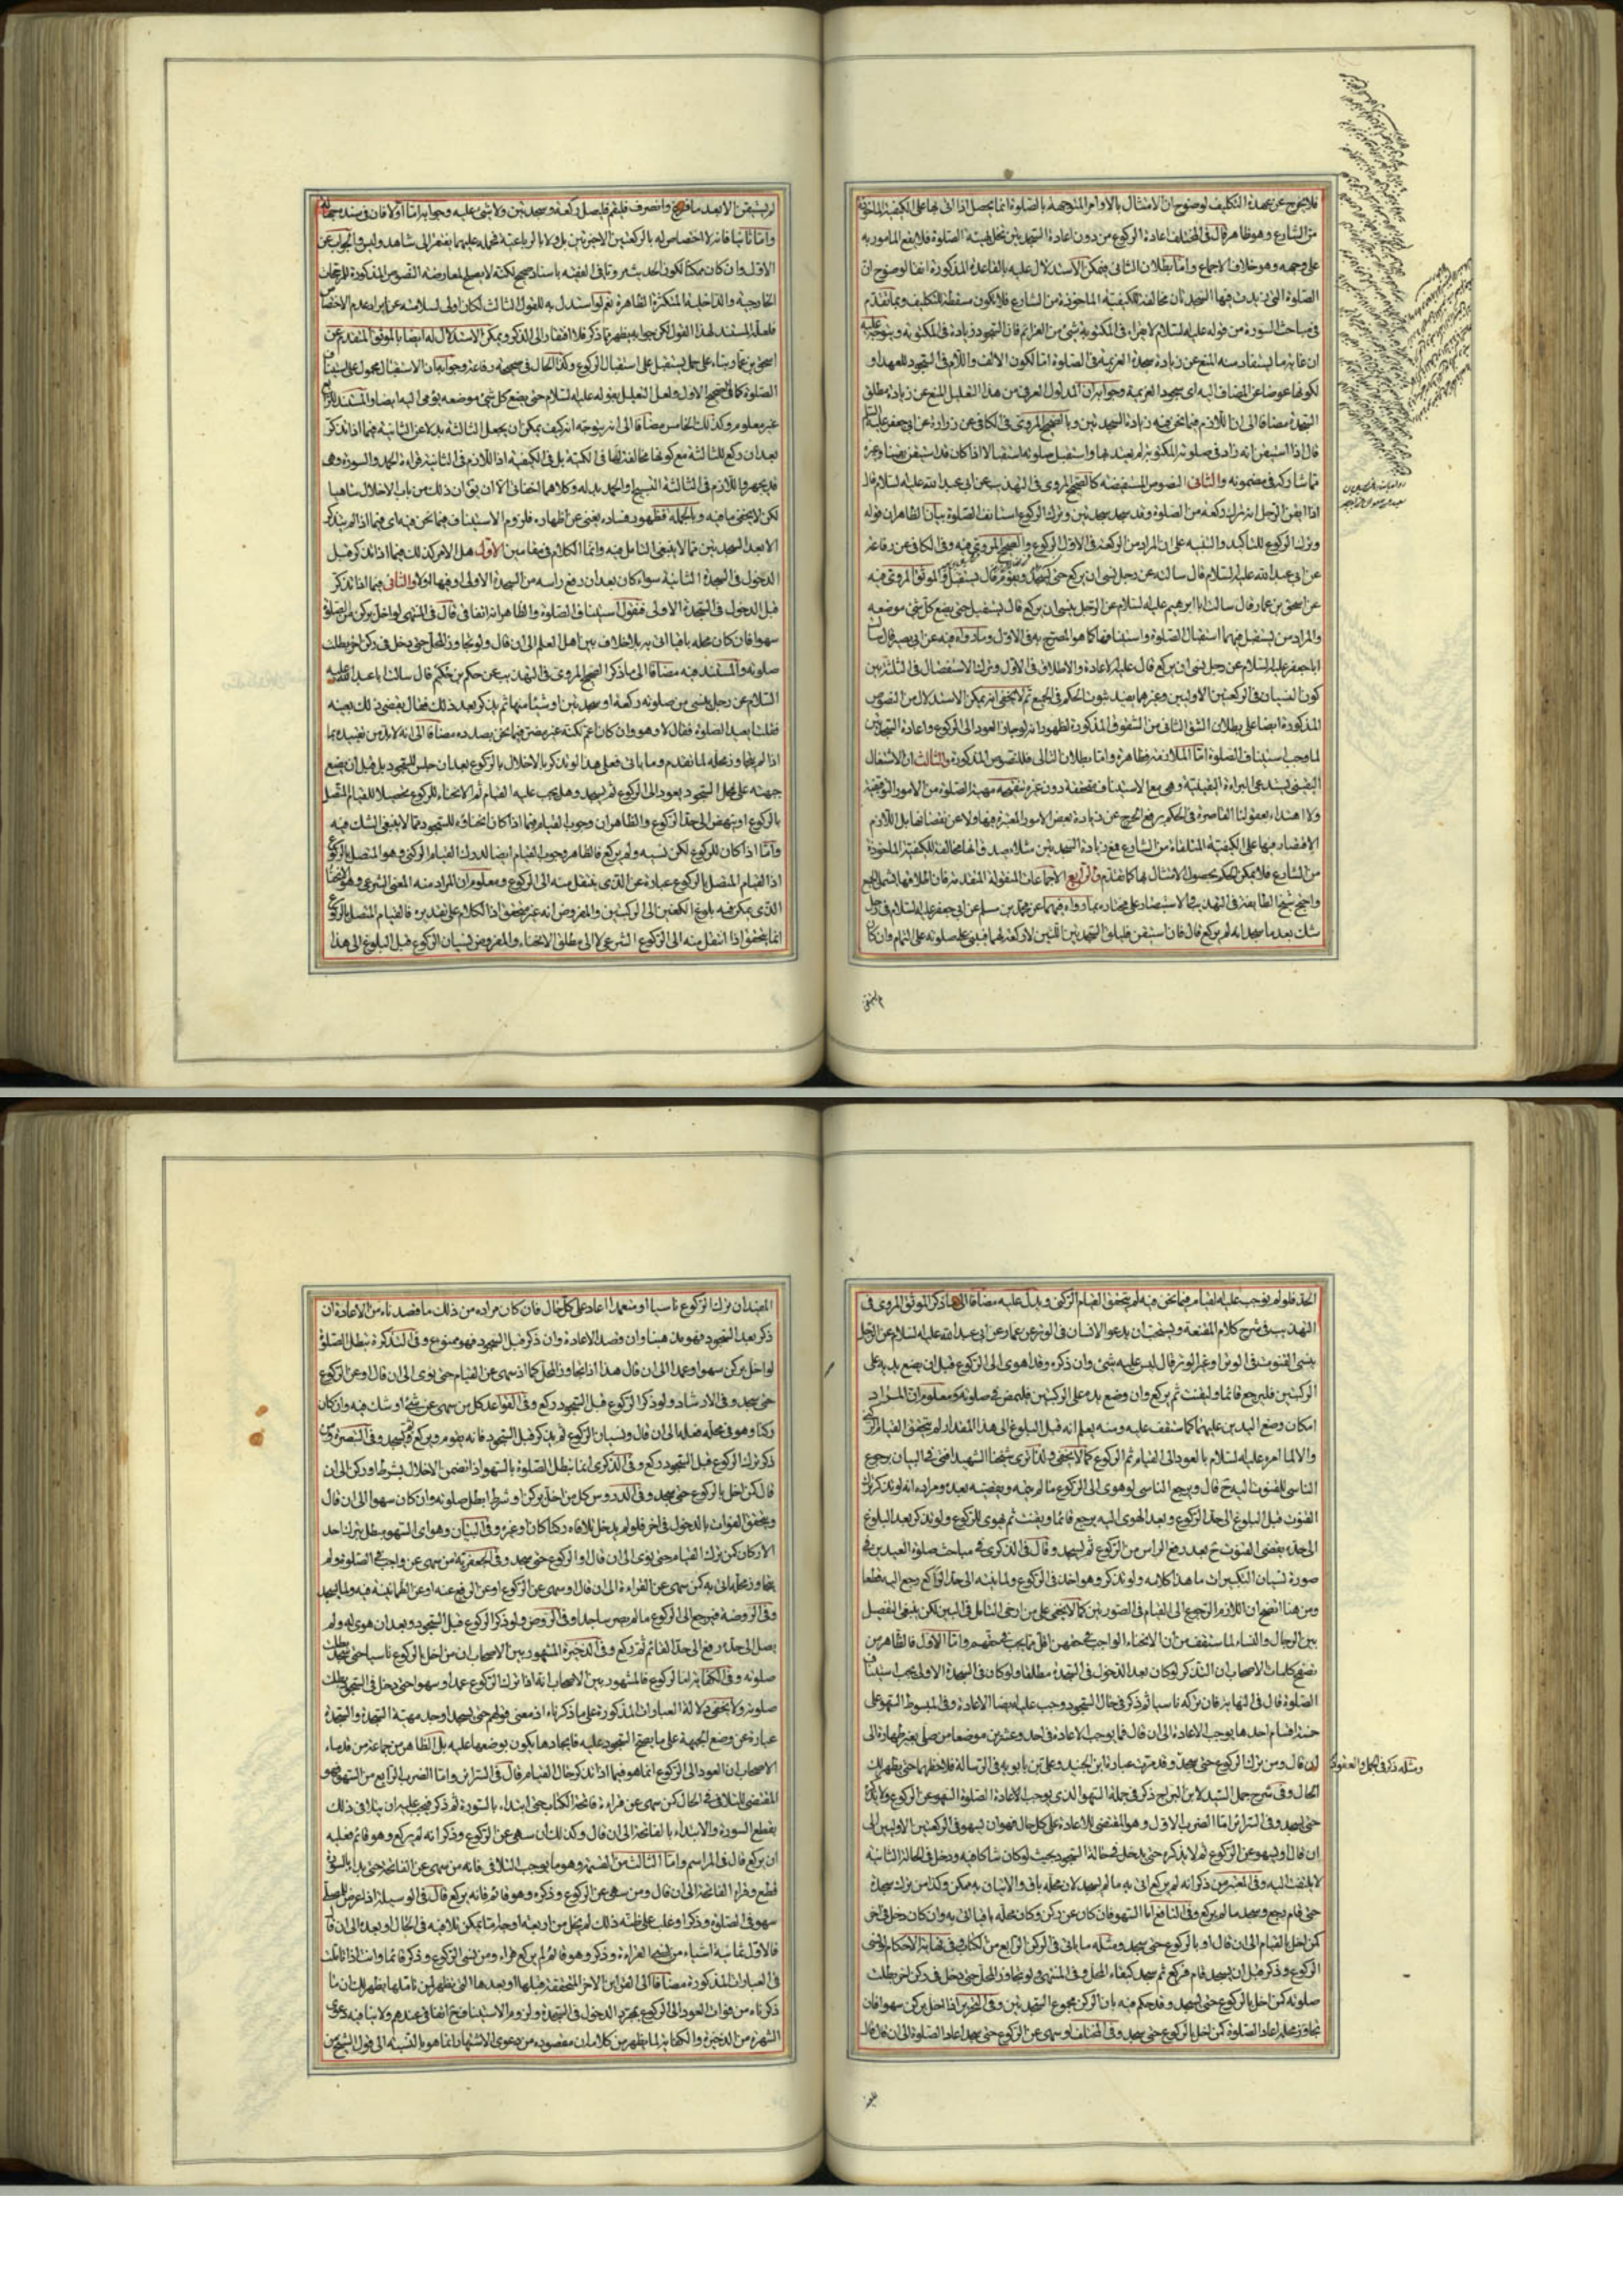 فلا يخرج عن عهدة التكليف لوضوح ان الامتثال بالاوامر المتوجهة بالصلوة انما يحصل اذا اتى بها على الكيفية المتلقاة
من الشارع وهو ظاهر قال في المختلف اعادة الركوع من دون اعادة السجدتين تخل بهيئة الصلوة فلا يقع المامور به
على وجهه وهو خلاف الاجماع واما بطلان الثاني فيمكن الاستدلال عليه بالقاعدة المذكورة ايضا لوضوح ان
الصلوة التي زيدت فيها السجدتان مخالفة للكيفية الماخوذة من الشارع فلا يكون مسقطة للتكليف وبما تقدم
في مباحث السورة من قوله عليه السلام لا يقراء في المكتوبة بشئ من العزايم فان السجود زيادة في المكتوبة ويتوجه عليه
ان غاية ما يستفاد منه المنع عن زيادة سجدة العزيمة في الصلوة اما لكون الالف واللام في السجود للعهد او
لكونها عوضا عن المضاف اليه اى سجود العزيمة وجوابه ان المدلول العرفي من هذا التعليل المنع عن زيادة مطلق
السجدة مضافا الى ان اللازم فيما نحن فيه زيادة السجدتين وبالصحيح المروي في الكافي عن زرارة عن ابي جعفر عليه السلام
قال اذا استيقن انه زاد في صلوته المكتوبة لم يعتد بها واستقبل صلوته استقبالا اذا كان قد استيقن يقينا وغيره
مما شاركه في مضمونه والثاني النصوص المستفيضة كالصحيح المروي في التهذيب عن ابي عبد الله عليه السلام قال
اذا ايقن الرجل انه ترك ركعة من الصلوة وقد سجد سجدتين وترك الركوع استانف الصلوة بيان الظاهر ان قوله
وترك الركوع للتاكيد والتنبيه على ان المراد من الركعة في الاول الركوع والصحيح المروي فيه وفي الكافي عن رفاعة
عن ابي عبد الله عليه السلام قال سالته عن رجل نسي ان يركع حتى يسجد ويقوم قال يستقبل والموثق المروي فيه
عن اسحق بن عمار قال سالت ابا ابرهيم عليه السلام عن الرجل ينسى ان يركع قال يستقبل حتى يضع كل شئ موضعه
والمراد من يستقبل فيهما استقبال الصلوة واستينافها كما هو المصرح به في الاول وما رواه فيه عن ابي بصير قال سالت
ابا جعفر عليه السلام عن رجل نسي ان يركع قال عليه الاعادة والاطلاق في الاول وترك الاستفصال في الثلثة بين
كون النسيان في الركعتين الاوليين وغيرهما يفيد ثبوت الحكم في الجميع ثم لا يخفى انه يمكن الاستدلال من النصوص
المذكورة ايضا على بطلان الشق الثاني من الشقوق المذكورة لظهور انه لو جاز العود الى الركوع واعادة السجدتين
لما وجب استيناف الصلوة اما الملازمة فظاهرة واما بطلان التالي فللنصوص المذكورة والثالث ان الاشتغال
اليقيني يستدعي البراءة اليقينية وهي مع الاستيناف متحققة دون غيره
ولا اهتداء لعقولنا القاصرة في الحكم برفع الحرج عن زيادة بعض الامور المعتبرة فيها ولا عن نقصانها بل اللازم
الاقتصار فيها على الكيفية المتلقاة من الشارع فمع زيادة السجدتين مثلا يصدق انها مخالفة للكيفية الماخوذة
من الشارع فلا يمكن الحكم بحصول الامتثال بها كما تقدم والرابع الاجماعات المنقولة المتقدمة فان اطلاقها يشمل الجميع
واحتج شيخ الطايفة في التهذيب والاستبصار على مختاره بما رواه فيهما عن محمد بن مسلم عن ابي جعفر عليه السلام في رجل
شك بعد ما سجد انه لم يركع قال فان استيقن فليلق السجدتين اللتين لا ركعة لهما فيبنى على صلوته على التمام وان كان
لم يستيقن الا بعد ما فرغ وانصرف فليقم فليصل ركعة وسجدتين ولا شئ عليه وجوابه اما اولا فان في سنده
واما ثانيا فانه لا اختصاص له بالركعتين الاخيرتين بل ولا بالرباعية فحمله عليهما يفتقر الى شاهد وليس والجواب عن
الاول وان كان ممكنا لكون
الخارجية والداخلية المتكثرة الظاهرة نعم لو استدل به للقول الثالث لكان اولى لسلامته عن ايراد عدم الاختصاص
اسحق بن عمار بناء على حمل يستقبل على استقبال الركوع وكذا الحال في صحيحة رفاعة وجوابه ان الاستقبال محمول على استيناف
الصلوة كما في الصحيح الاول ولعل التعليل بقوله عليه السلام حتى يضع كل شئ موضعه يؤمى اليه ايضا والمستند للرابع
غير معلوم وكذلك الخامس مضافا الى انه يتوجه انه كيف يمكن ان يجعل الثالثة بدلا عن الثانية فيما اذا تذكر
بعد ان ركع للثالثة مع كونها مخالفة لها في الكمية بل في الكيفية اذ اللازم في الثانية قراءة الحمد والسورة وهي
قد يجهر واللازم في الثالثة التسبيح او الحمد بدله وكلاهما اخفاتي الا ان يق ان ذلك من باب الاخلال ساهيا
لكن لا يخفى ما فيه وبالجملة فظهور فساده يغني عن اظهاره فلزوم الاستيناف فيما نحن فيه اى فيما اذا لم يتذكر
الا بعد السجدتين مما لا ينبغي التامل فيه وانما الكلام في مقامين الاول هل الامر كذلك فيما اذا تذكر قبل
الدخول في السجدة الثانية سواء كان بعد ان رفع راسه من السجدة الاولى او فيها اولا والثاني فيما اذا تذكر
قبل الدخول في السجدة الاولى فنقول استيناف الصلوة والظاهر انه اتفاقي قال في المنتهى لو اخل بركن من الصلوة
سهوا فان كان محله باقيا اتى به بلا خلاف بين اهل العلم الى ان قال ولو تجاوز المحل حتى دخل في ركن اخر بطلت
صلوته والمستند فيه مضافا الى ما ذكر الصحيح المروي في التهذيب عن حكم بن حكيم قال سالت ابا عبد الله عليه
السلام عن رجل ينسى من صلوته ركعة او سجدتين او شيئا منها ثم يذكر بعد ذلك فقال يقضي ذلك بعينه
فقلت ايعيد الصلوة فقال لا وهو وان كان اعم لكنه غير مضر فيما نحن بصدده مضافا الى انه لا بد من تقييده بما
اذا لم يتجاوز محله لما تقدم وما ياتى فعلى هذا لو تذكر بالاخلال بالركوع بعد ان جلس للسجود بل قبل ان يضع
جبهته على محل السجود يعود الى الركوع ثم يسجد وهل يجب عليه القيام ثم الانحناء للركوع تحصيلا للقيام المتصل
بالركوع او ينهض الى حد الركوع والظاهر ان وجوب القيام فيما اذا كان انحناؤه للسجود مما لا ينبغي الشك فيه
واما اذا كان للركوع لكن نسيه ولم يركع فالظاهر وجوب القيام ايضا لدرك القيام الركني وهو المتصل بالركوع
اذ القيام المتصل بالركوع عبارة عن الذي ينتقل منه الى الركوع ومعلوم ان المراد منه المعنى الشرعي وهو الانحناء
الذي يمكن فيه بلوغ الكفين الى الركبتين والمفروض انه غير متحقق اذ الكلام على تقديره فالقيام المتصل بالركوع
انما يتحقق اذا انتقل منه الى الركوع الشرعي لا الى مطلق الانحناء والمفروض نسيان الركوع قبل البلوغ الى هذا
الحد فلو لم يوجب عليه القيام فيما نحن فيه لم يتحقق القيام الركني ويدل عليه مضافا الى ما ذكر الموثق المروي في
التهذيب في شرح كلام المقنعة ويستحب ان يدعو الانسان في الوتر عن عمار عن ابي عبد الله عليه السلام عن الرجل
ينسى القنوت في الوتر او غير الوتر قال ليس عليه شئ وان ذكره وقد اهوى الى الركوع قبل ان يضع يديه على
الركبتين فليرجع قائما وليقنت ثم يركع وان وضع يده على الركبتين فليمض في صلوته ومعلوم ان المراد
امكان وضع اليدين عليهما كما ستقف عليه ومنه يعلم انه قبل البلوغ الى هذا المقدار لم يتحقق القيام الركني
والا لما امره عليه السلام بالعود الى القيام ثم الركوع كما لا يخفى ولذا ترى شيخنا الشهيد افتى في البيان برجوع
الناسي للقنوت اليه ح قال ويرجع الناسي لو هوى الى الركوع ما لم يبلغه ويقضيه بعده ومراده انه لو تذكر ترك
القنوت قبل البلوغ الى حد الركوع وبعد الهوى اليه يرجع قائما ويقنت ثم يهوى للركوع ولو تذكر بعد البلوغ
الى حده يقضى القنوت ح بعد رفع الراس من الركوع ثم يسجد وقال في الذكرى في مباحث صلوة العيدين في
صورة نسيان التكبيرات ما هذا كلامه ولو تذكر وهو اخذ في الركوع ولما ينته الى حد الراكع رجع اليه قطعا
ومن هنا اتضح ان اللازم الرجوع الى القيام في الصورتين كما لا يخفى على من ارخى التامل في البين لكن ينبغي التفصيل
بين الرجال والنساء لما ستقف من ان الانحناء الواجب في حقهن اقل مما يجب في حقهم واما الاول فالظاهر من
تصفح كلمات الاصحاب ان التذكر لو كان بعد الدخول في السجدة مطلقا ولو كان في السجدة الاولى يجب استيناف
الصلوة قال في النهاية فان تركه ناسيا ثم ذكر في حال السجود وجب عليه ايضا الاعادة وفي المبسوط السهو على
خمسة اقسام احدها يوجب الاعادة الى ان قال فما يوجب الاعادة في احد وعشرين موضعا من صلى بغير طهارة الى
ان قال ومن ترك الركوع حتى يسجد وقد مرت عبارة ابن الجنيد وعلي بن بابويه في الرسالة فلاحظها حتى يظهر لك
ومثله ذكر في الجمل والعقود
الحال وفي شرح جمل السيد لابن البراج ذكر في جملة السهو الذي يوجب الاعادة الصلوة السهو عن الركوع ولا يذكر
حتى يسجد وفي السرائر اما الضرب الاول وهو المقتضي للاعادة على كل حال فهو ان يسهو في الركعتين الاوليين الى
ان قال او يسهو عن الركوع ثم لا يذكره حتى يدخل في حالة السجود بحيث لو كان شاكا فيه ودخل في الحالة الثانية
لا يلتفت اليه وفي المعتبر من ذكر انه لم يركع اتى به ما لم يسجد لان محله باق والاتيان به ممكن وكذا من ترك سجدة
حتى قام رجع وسجد ما لم يركع وفي النافع اما السهو فان كان عن ركن وكان محله باقيا اتى به وان كان دخل في اخر
كمن اخل بالقيام الى ان قال او بالركوع حتى يسجد ومثله ما ياتى في الركن الرابع من الكتاب وفي نهاية الاحكام لو نسي
الركوع وذكر قبل ان يسجد قام فركع ثم سجد لبقاء المحل وفي المنتهى ولو تجاوز المحل حتى دخل في ركن اخر بطلت
صلوته كمن اخل بالركوع حتى يسجد وقد حكم فيه بان الركن مجموع السجدتين وفي التحرير اذا اخل بركن سهوا فان
تجاوز محله اعاد الصلوة كمن اخل بالركوع حتى يسجد وفي المختلف لو سهى عن الركوع حتى سجد اعاد الصلوة الى ان قال قال
المفيد ان ترك الركوع ناسيا او متعمدا اعاد على كل حال فان كان مراده من ذلك ما قصدناه من الاعادة ان
ذكر بعد السجود فهو مذهبنا وان قصد الاعادة وان ذكر قبل السجود فهو ممنوع وفي التذكرة تبطل الصلوة
لو اخل بركن سهوا وعمدا الى ان قال هذا اذا تجاوز المحل كما اذ سهى عن القيام حتى نوى الى ان قال او عن الركوع
حتى يسجد وفي الارشاد ولو ذكر الركوع قبل السجود ركع وفي القواعد كل من سهى عن شئ او شك فيه وان كان
ركنا وهو في محله فعله الى ان قال ونسيان الركوع ثم يذكر قبل السجود فانه يقوم ويركع ثم يسجد وفي التبصرة وان
ذكر ترك الركوع قبل السجود ركع وفي الذكرى انما تبطل الصلوة بالسهو اذا تضمن الاخلال بشرط او ركن الى ان
قال كمن اخل بالركوع حتى يسجد وفي الدروس كل من اخل بركن او شرط ابطل صلوته وان كان سهوا الى ان قال
ويتحقق الفوات بالدخول في اخر فلو لم يدخل تلافاه ركنا كان او غيره وفي البيان وهو اى السهو يبطل بترك احد
الاركان كمن ترك القيام حتى نوى الى ان قال او الركوع حتى سجد وفي الجعفرية من سهى عن واجب في الصلوة ولم
يتجاوز محله اتى به كمن سهى عن القراءة الى ان قال او سهى عن الركوع او عن الرفع عنه او عن الطمانينة فيه ولما يسجد
وفي الروضة فيرجع الى الركوع ما لم يصر ساجدا وفي الروض ولو ذكر الركوع قبل السجود وبعد ان هوى له ولم
يصل الى حده رفع الى حد القائم ثم ركع وفي الذخيرة المشهور بين الاصحاب ان من اخل بالركوع ناسيا حتى سجد بطلت
صلوته وفي الكفاية اما الركوع فالمشهور بين الاصحاب انه اذا ترك الركوع عمدا او سهوا حتى دخل في السجود بطلت
صلوته ولا يخفى دلالة العبارات المذكورة على ما ذكرناه اذ معنى قولهم حتى يسجد اوجد مهية السجدة والسجدة
عبارة عن وضع الجبهة على ما يصح السجود عليه فايجادها يكون بوضعها عليه بل الظاهر من جماعة من قدماء
الاصحاب ان العود الى الركوع انما هو فيما اذا تذكر حال القيام قال في السرائر واما الضرب الرابع من السهو فهو
المقتضي للتلافي في الحال كمن سهى عن قراءة فاتحة الكتاب حتى ابتداء بالسورة ثم ذكر فيجب عليه ان يتلافى ذلك
بقطع السورة والابتداء بالفاتحة الى ان قال وكذلك ان سهى عن الركوع وذكر انه لم يركع وهو قائم فعليه
ان يركع قال في المراسم واما الثالث من القسمة وهو ما يوجب التلافي فانه من سهى عن الفاتحة حتى بدا بالسورة
قطع وقراء الفاتحة الى ان قال ومن سهى عن الركوع وذكره وهو قائم فانه يركع قال في الوسيلة اذا عرض للمصلى
سهو في الصلوة وذكر او غلب على ظنه ذلك لم يخل من اربعة اوجه اما يمكن تلافيه في الحال او بعده الى ان قال
فالاول ثمانية اشياء من نسي القراءة وذكر وهو قائم لم يركع قراء ومن نسي الركوع وذكر قائما وانت اذا تاملت
في العبارات المذكورة مضافا الى القراين الاخر المتحققة قبلها او بعدها التى يظهر لمن تاملها يظهر لك ان ما
ذكرناه من فوات العود الى الركوع بمجرد الدخول في السجدة ولزوم الاستيناف ح اتفاقي عندهم ولا ينافيه دعوى
الشهرة من الذخيرة والكفاية لما يظهر من كلامه ان مقصوده من دعوى الاشتهار انما هو بالنسبة الى قول الشيخ من